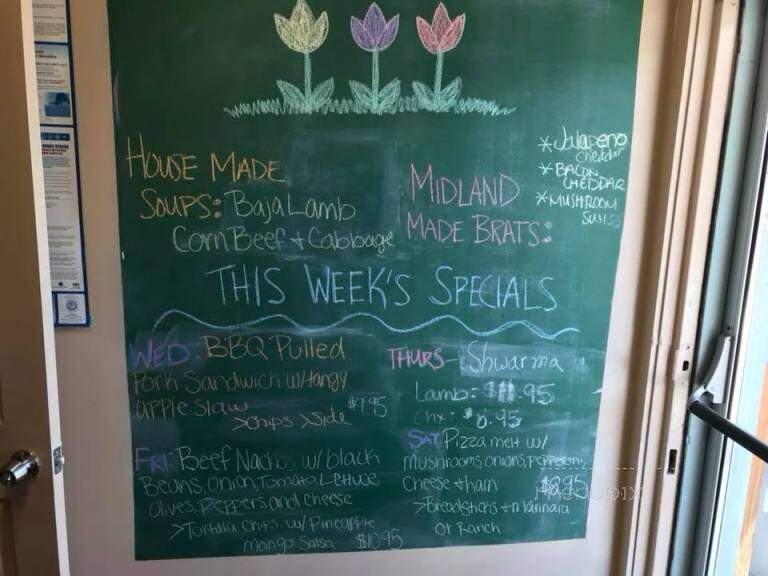 HOUSE MADE
SOUPS: Baja Lamb
Corn Beef + Cabbage
MIDLAND
MADE BRATS:
* Jalapeno
cheddar
* BACON
CHEDDAR
* MUSHROOM
SWISS
THIS WEEK'S SPECIALS
WED. BBQ Pulled
Pork Sandwich w/tangy
apple slaw
>chips >side
THURS- Shwarma
Lamb: $11.95
Chx:
FRI: Beef Nachos w/ black
Beans, onion, Tomato, Lettuce,
olives, Peppers, and cheese
>Tortilla chips w/ Pineapple
mango Salsa $10.95
SAT Pizza melt w/
mushrooms, onions, pepperoni,
cheese + ham $8.95
>Breadsticks + marinara
or Ranch